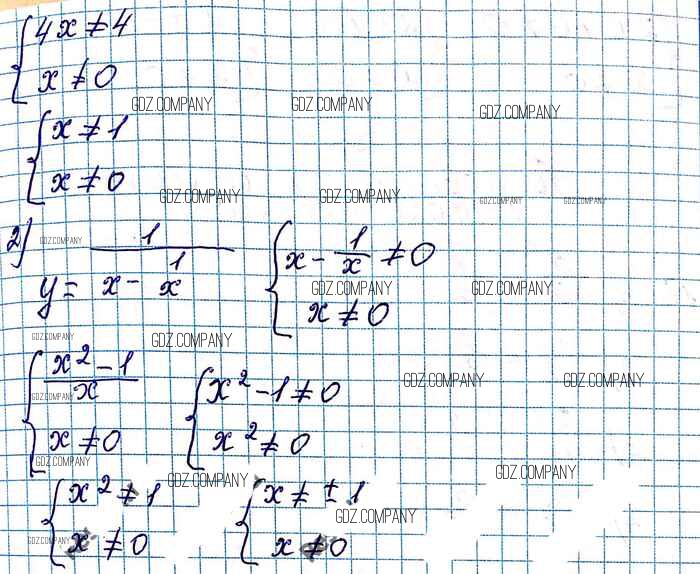 {4x ≠ 4
x ≠ 0
GDZ.COMPANY GDZ.COMPANY GDZ.COMPANY
{x ≠ 1
x ≠ 0
GDZ.COMPANY GDZ.COMPANY GDZ.COMPANY GDZ.COMPANY
2) y = 1/(x - 1/x) {x - 1/x ≠ 0
GDZ.COMPANY GDZ.COMPANY GDZ.COMPANY
x ≠ 0
GDZ.COMPANY GDZ.COMPANY
{(x² - 1)/x {x² - 1 ≠ 0
GDZ.COMPANY GDZ.COMPANY GDZ.COMPANY
x ≠ 0 x² ≠ 0
GDZ.COMPANY GDZ.COMPANY GDZ.COMPANY
{x² ≠ 1 {x ≠ ± 1
GDZ.COMPANY GDZ.COMPANY
x ≠ 0 x ≠ 0